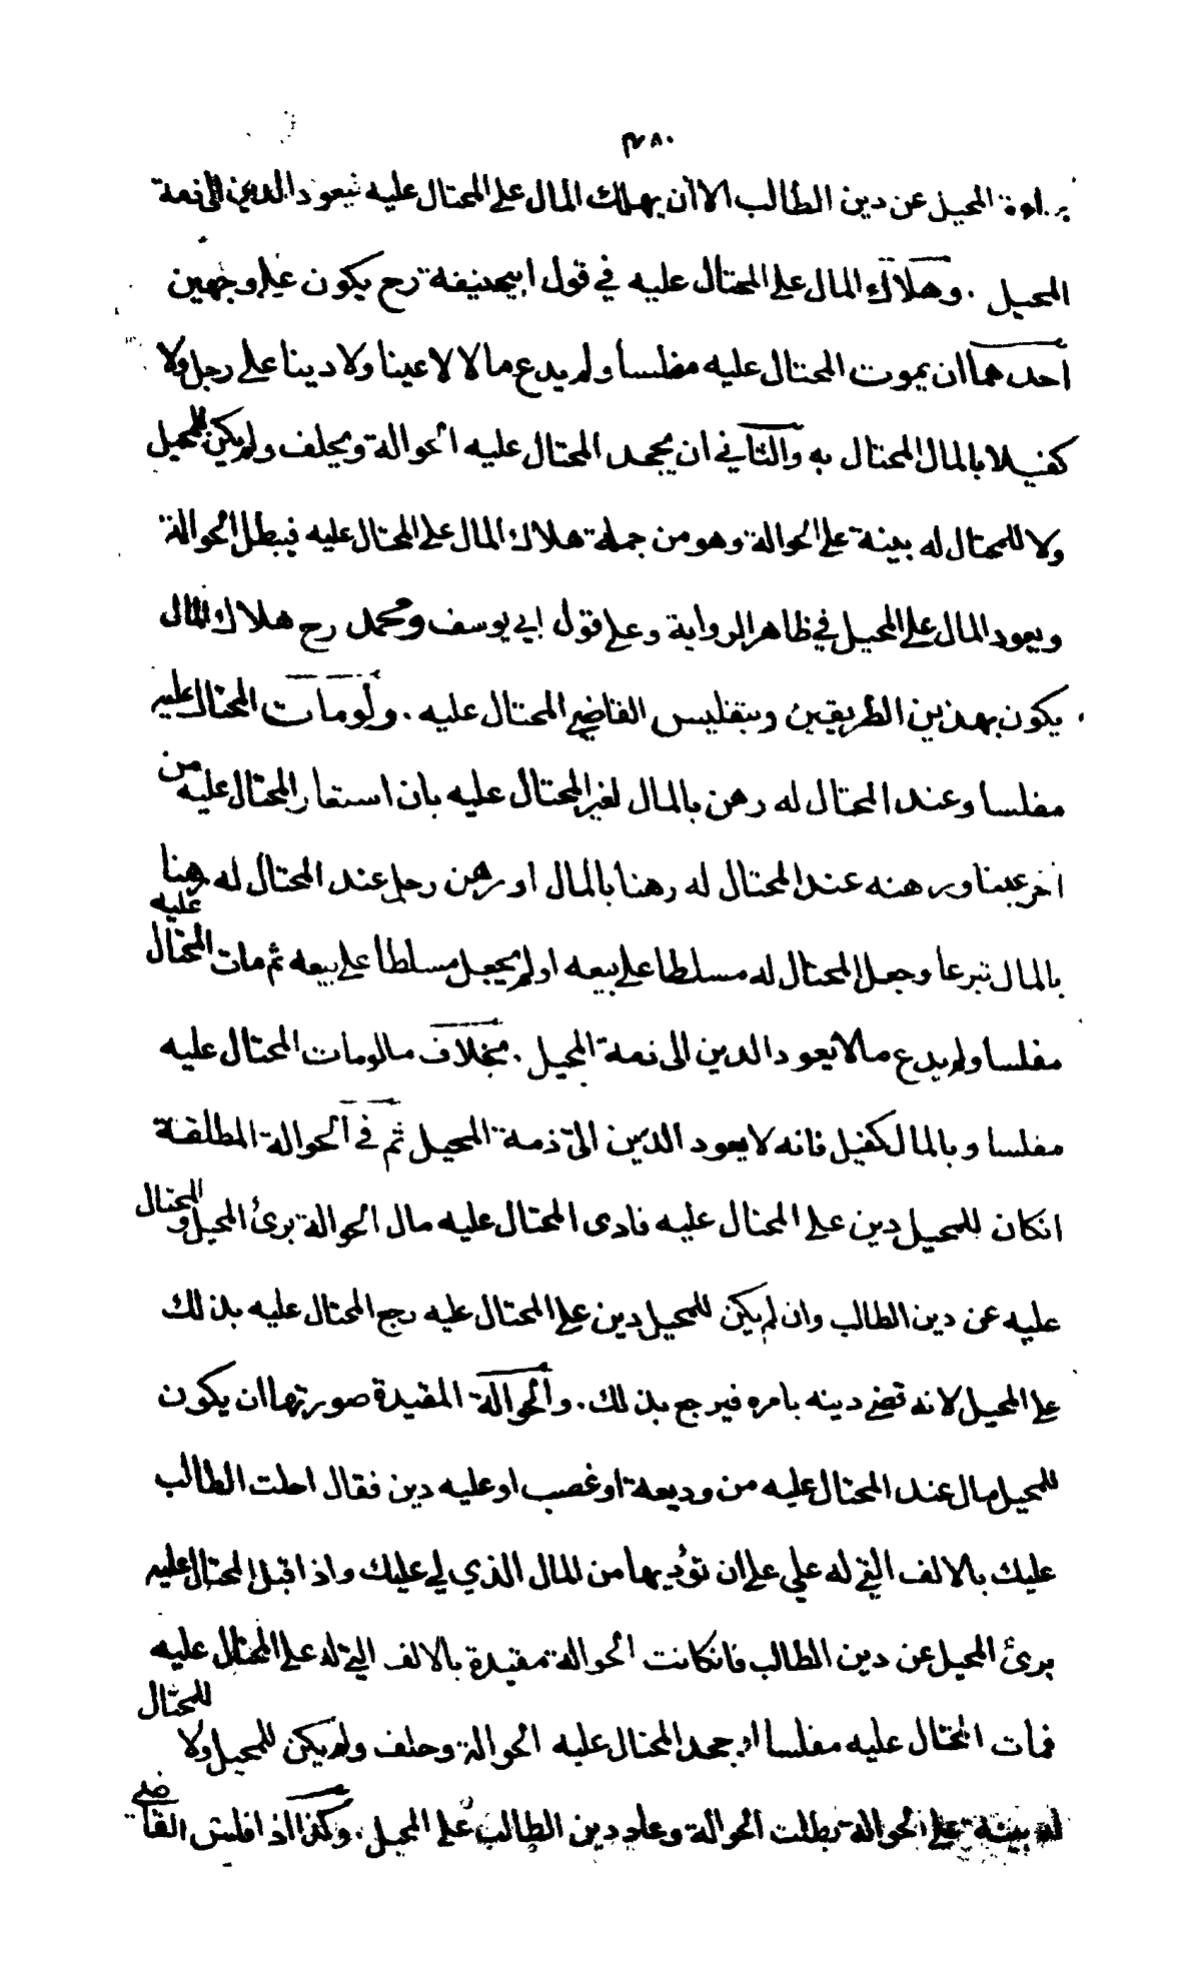 ٤٨٠
براءة المحيل عن دين الطالب الا أن يهلك المال على المحتال عليه فيعود الدين الى ذمة
المحيل . وهلاك المال على المحتال عليه في قول ابيحنيفة رح يكون على وجهين
احدهما ان يموت المحتال عليه مفلسا ولم يدع مالا لا عينا ولا دينا على رجل ولا
كفيلا بالمال المحتال به والثاني ان يجحد المحتال عليه الحوالة ويحلف ولم يكن للمحيل
ولا للمحتال له بينة على الحوالة وهو من جملة هلاك المال على المحتال عليه فيبطل الحوالة
ويعود المال على المحيل في ظاهر الرواية وعلى قول ابي يوسف ومحمد رح هلاك المال
يكون بهذين الطريقين وبتفليس القاضي المحتال عليه . ولومات المحتال عليه
مفلسا وعند المحتال له رهن بالمال لغير المحتال عليه بان استعار المحتال عليه من
اخر عينا ويرهنه عند المحتال له رهنا بالمال او رهن رجل عند المحتال له رهنا
بالمال تبرعا وجعل المحتال له مسلطا على بيعه اولم يجعل مسلطا على بيعه ثم مات المحتال عليه
مفلسا ولم يدع مالا يعود الدين الى ذمة المحيل . بخلاف مالومات المحتال عليه
مفلسا وبالمال كفيل فانه لا يعود الدين الى ذمة المحيل ثم في الحوالة المطلقة
انكان للمحيل دين على المحتال عليه فادى المحتال عليه مال الحوالة برئ المحيل والمحتال
عليه عن دين الطالب وان لم يكن للمحيل دين على المحتال عليه رجع المحتال عليه بذلك
على المحيل لانه قضى دينه بامره فيرجع بذلك . والحوالة المقيدة صورتها ان يكون
للمحيل مال عند المحتال عليه من وديعة او غصب او عليه دين فقال احلت الطالب
عليك بالالف التي له علي على ان تؤديها من المال الذي لي عليك واذا قبل المحتال عليه
برئ المحيل عن دين الطالب فانكانت الحوالة مقيدة بالالف التي له على المحتال عليه
فمات المحتال عليه مفلسا او جحد المحتال عليه الحوالة وحلف ولم يكن للمحيل ولا للمحتال
له بينة على الحوالة بطلت الحوالة وعاد دين الطالب على المحيل . وكذا اذا فلس القاضي